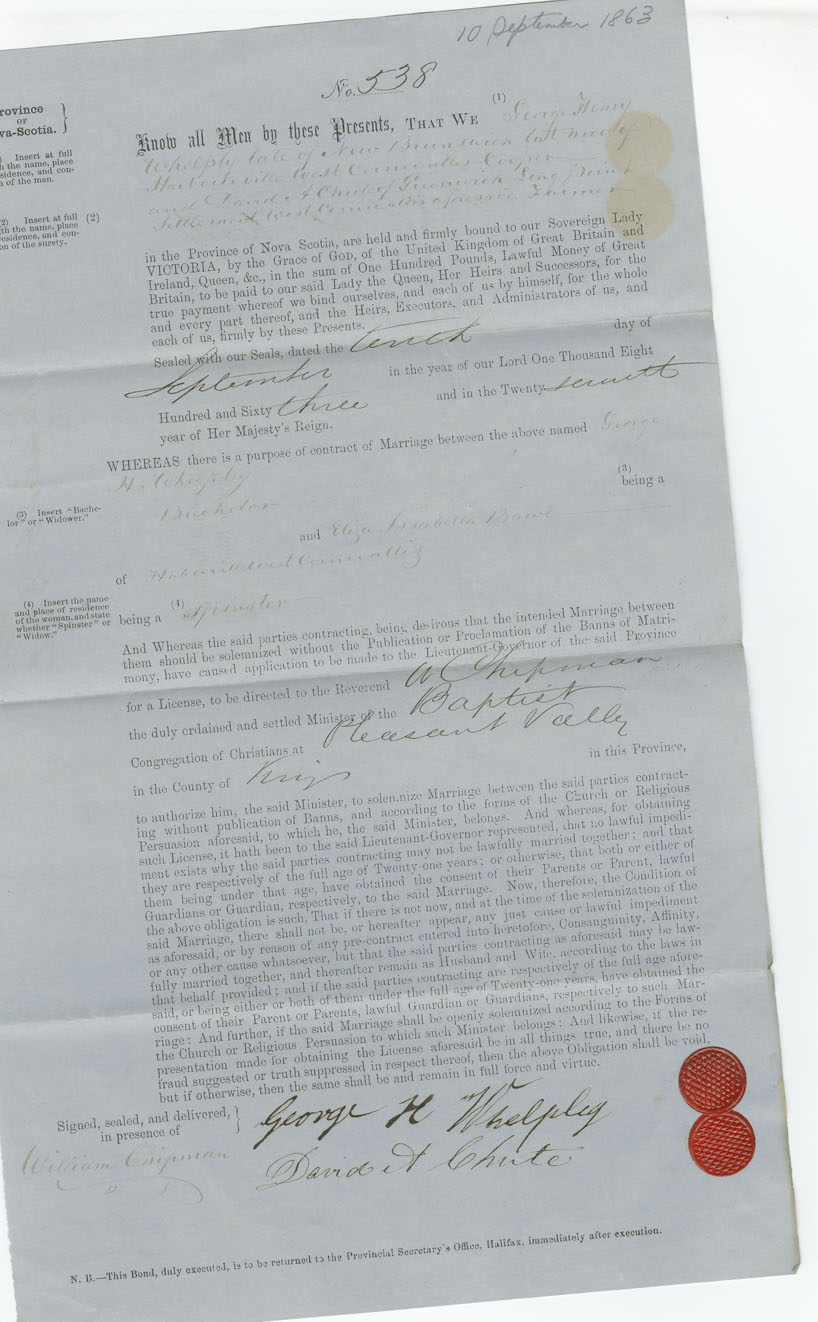 10 September 1863
No. 538
Province
OF
Nova-Scotia.
Know all Men by these Presents, THAT WE (1) George Henry
Whelply late of New Brunswick but now of
Harbourville West Cornwallis
and David A Chute of Greenwich Long Point
Settlement West Cornwallis aforesaid Farmer
(1) Insert at full
length the name, place
of residence, and con-
dition of the man.
(2) Insert at full
length the name, place
of residence, and con-
dition of the surety.
(2)
in the Province of Nova Scotia, are held and firmly bound to our Sovereign Lady
VICTORIA, by the Grace of GOD, of the United Kingdom of Great Britain and
Ireland, Queen, &c., in the sum of One Hundred Pounds, Lawful Money of Great
Britain, to be paid to our said Lady the Queen, Her Heirs and Successors, for the
true payment whereof we bind ourselves, and each of us by himself, for the whole
and every part thereof, and the Heirs, Executors, and Administrators of us, and
each of us, firmly by these Presents.
Sealed with our Seals, dated the tenth day of
September in the year of our Lord One Thousand Eight
Hundred and Sixty three and in the Twenty seventh
year of Her Majesty's Reign.
WHEREAS there is a purpose of contract of Marriage between the above named George
H. Whelpley (3) being a
(3) Insert "Bache-
lor" or "Widower."
Bachelor
and Eliza Issabella
of West Cornwallis
(4) Insert the name
and place of residence
of the woman, and state
whether "Spinster" or
"Widow."
being a (4) Spinster
And Whereas the said parties contracting, being de-irous that the intended Marriage between
them should be solemnized without the Publication or Proclamation of the Banns of Matri-
mony, have caused application to be made to the Lieutenant-Governor of the said Province
for a License, to be directed to the Reverend W Chipman
the duly ordained and settled Minister of the Baptist
Congregation of Christians at Pleasant Vally
in the County of Kings in this Province,
to authorize him, the said Minister, to solemnize Marriage between the said parties contract-
ing without publication of Banns, and according to the forms of the Church or Religious
Persuasion aforesaid, to which he, the said Minister, belongs. And whereas, for obtaining
such License, it hath been to the said Lieutenant-Governor represented, that no lawful impedi-
ment exists why the said parties contracting may not be lawfully married together; and that
they are respectively of the full age of Twenty-one years; or otherwise, that both or either of
them being under that age, have obtained the consent of their Parents or Parent, lawful
Guardians or Guardian, respectively, to the said Marriage. Now, therefore, the Condition of
the above obligation is such, That if there is not now, and at the time of the solemnization of the
said Marriage, there shall not be, or hereafter appear, any just cause or lawful impediment
as aforesaid, or by reason of any pre-contract entered into heretofore, Consanguinity, Affinity,
or any other cause whatsoever, but that the said parties contracting as aforesaid may be law-
fully married together, and thereafter remain as Husband and Wife, according to the laws in
that behalf provided; and if the said parties contracting are respectively of the full age afore-
said, or being either or both of them under the full age of Twenty-one years, have obtained the
consent of their Parent or Parents, lawful Guardian or Guardians, respectively to such Mar-
riage: And further, if the said Marriage shall be openly solemnized according to the Forms of
the Church or Religious Persuasion to which such Minister belongs: And likewise, if the re-
presentation made for obtaining the License aforesaid be in all things true, and there be no
fraud suggested or truth suppressed in respect thereof, then the above Obligation shall be void,
but if otherwise, then the same shall be and remain in full force and virtue.
Signed, sealed, and delivered,
in presence of
George H Whelpley
William Chipman
David A Chute
N. B.—This Bond, duly executed, is to be returned to the Provincial Secretary's Office, Halifax, immediately after execution.